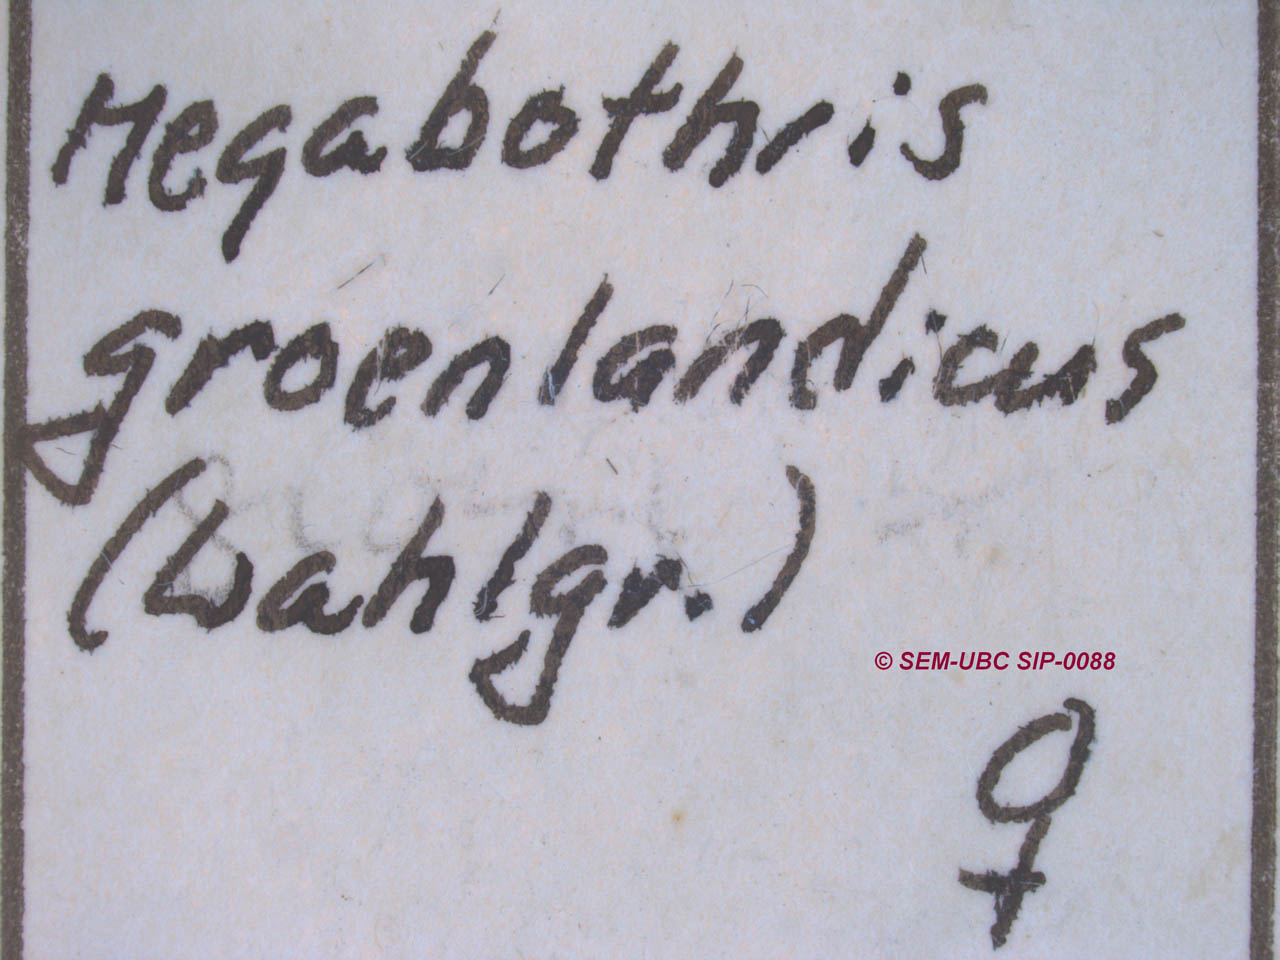 Megabothris
groenlandicus
(Wahlgr.)
© SEM-UBC SIP-0088
♀